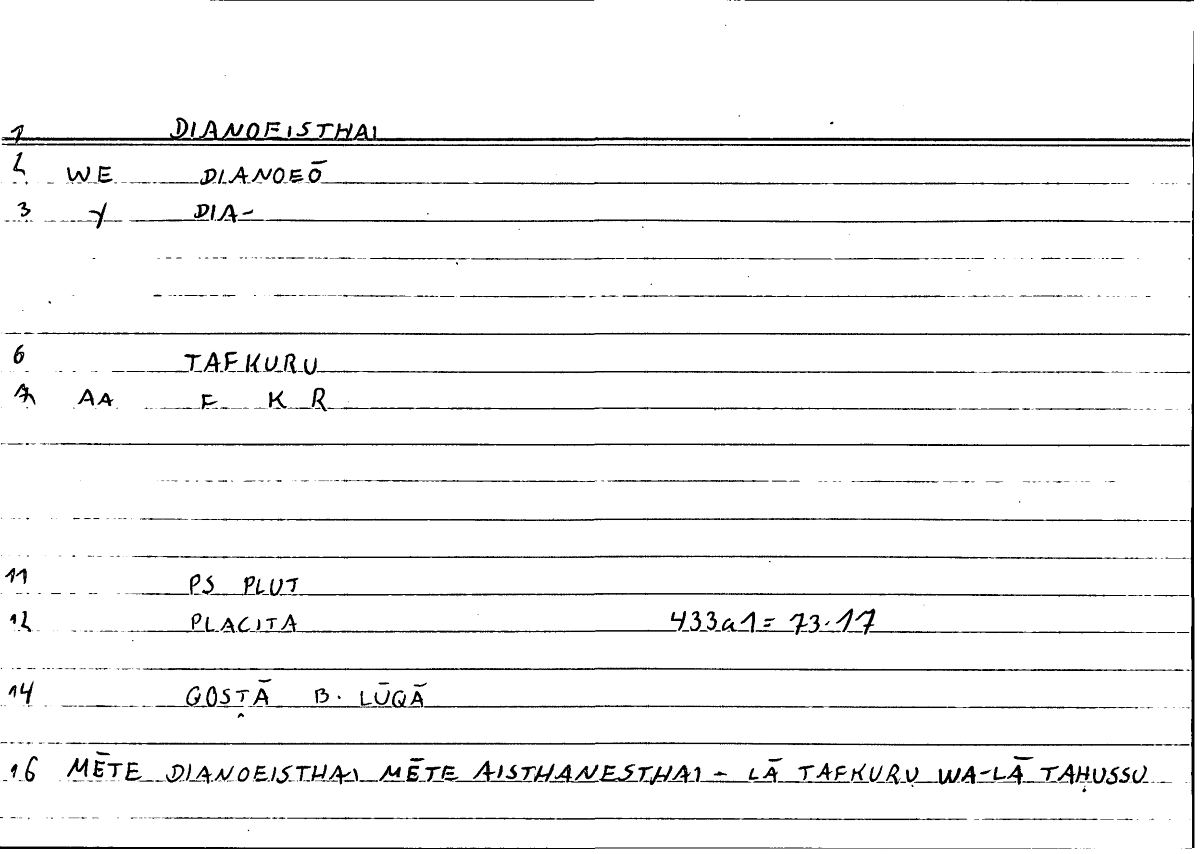 1 DIANOEISTHAI
2 WE DIANOEŌ
3 Y DIA-
6 TAFKURU
7 AA F K R
11 PS PLUT
12 PLACITA 433a1 = 73.17
14 QOSṬĀ B. LŪQĀ
16 MĒTE DIANOEISTHAI MĒTE AISTHANESTHAI - LĀ TAFKURU WA-LĀ TAḤUSSU